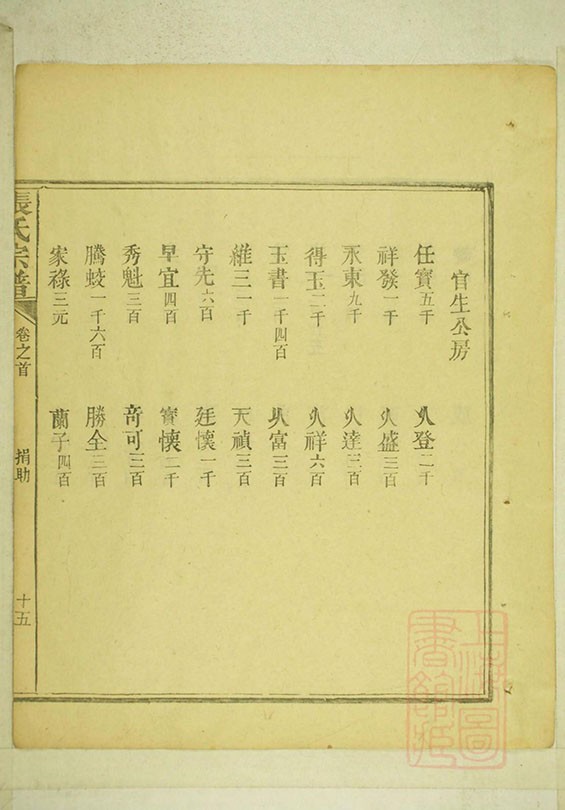 官生公房
任寶五千　乆登二千
祥發一千　乆盛三百
永東九千　乆達三百
得玉二千　乆祥六百
玉書一千四百　乆富三百
維三一千　天禎三百
守先六百　廷懷一千
早宜四百　寶懷二千
秀魁三百　奇可三百
騰蛟一千六百　勝全三百
家祿三元　蘭子四百
張氏宗譜　卷之首　捐助　十五
上海圖書館藏